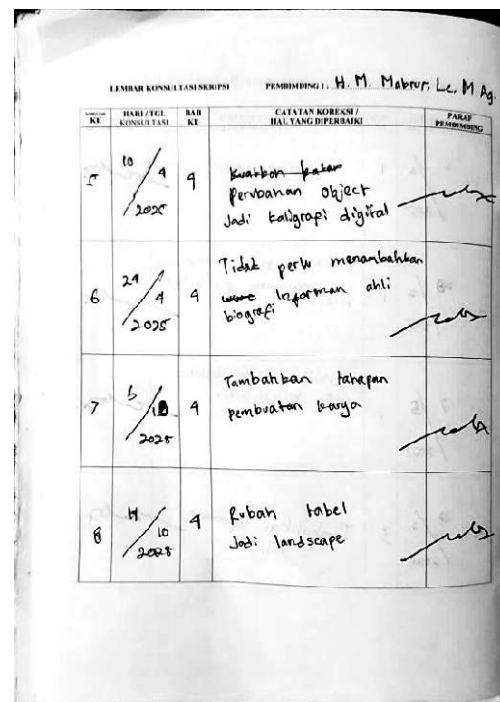 LEMBAR KONSULTASI SKRIPSI PEMBIMBING I : H. M. Mabrur, Lc, M Ag.
KE HARI / TGL KONSULTASI BAB KE CATATAN KOREKSI / HAL YANG DIPERBAIKI PARAF PEMBIMBING
5 10/4 2025 4
perubahan object
Jadi kaligrapi digital
6 24/4 2025 4 Tidak perlu menambahkan
Informan ahli
biografi
7 2025 4 Tambahkan tahapan
pembuatan karya
8 10 4 Rubah tabel
Jadi landscape